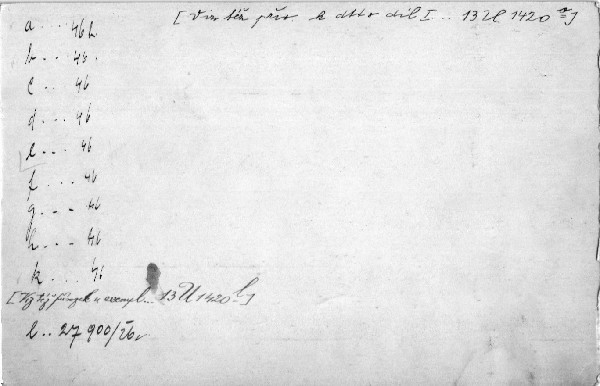 [Viz též přív. k dtto díl I .. 13 U 1420 a]
a ... 46 h
b ... 46.
c .. 46
d ... 46
e ... 46
f ... 46
g ... 46
h ... 46
k .... 46
13 U 1420 b]
l .. 27 900/26.